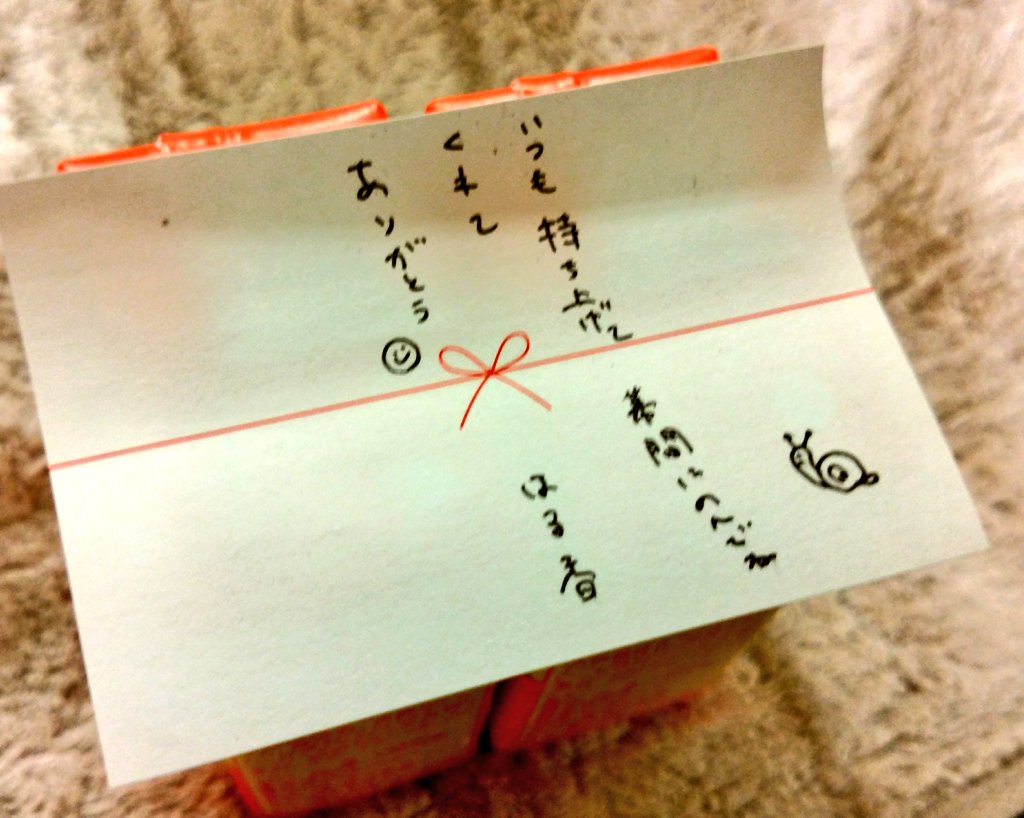 いつも持ち上げて
くれて
ありがとう
幕間にのんでね
はる香